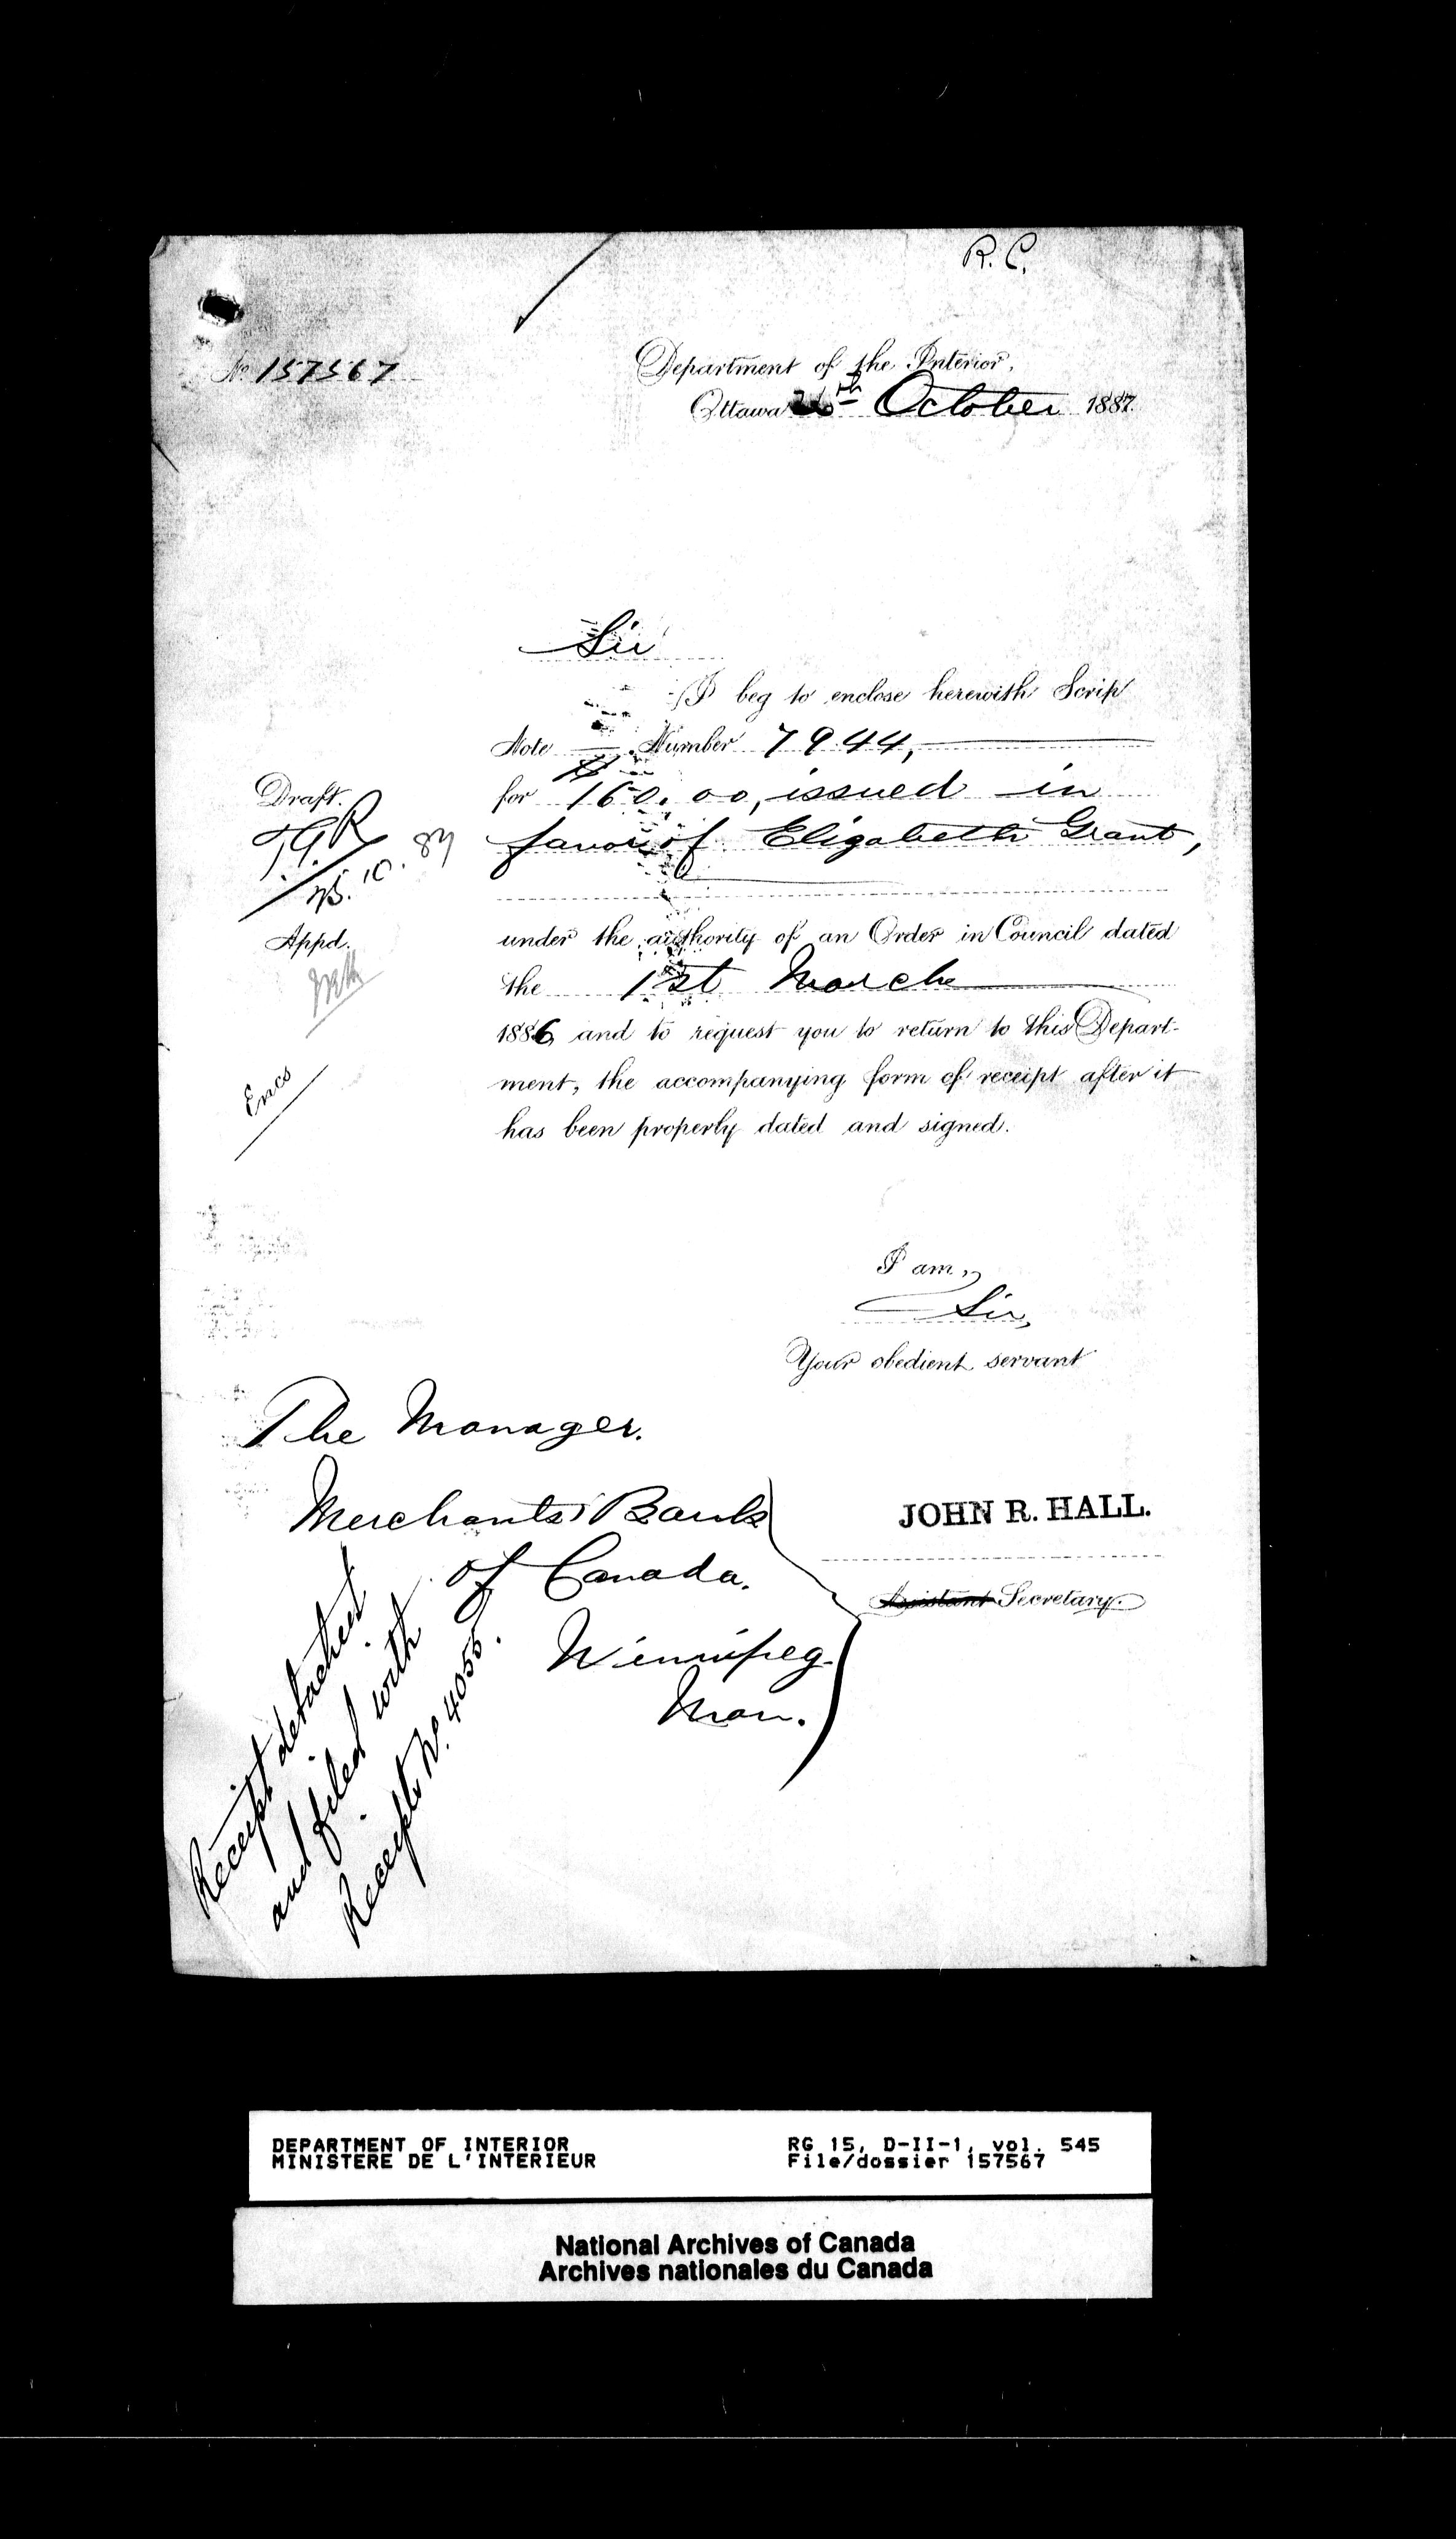 R. C.
No. 157567
Department of the Interior,
Ottawa 26th October 1887.
Sir
I beg to enclose herewith Scrip
Note — Number 7944,
for $160.00, issued in
favor of Elizabeth Grant,
under the authority of an Order in Council dated
the 1st March
1886, and to request you to return to this Depart-
ment, the accompanying form of receipt after it
has been properly dated and signed.
Draft.
T.G.R
25.10.87
Appd.
Encs
I am,
Sir,
Your obedient servant
The Manager.
Merchants Bank
of Canada.
Winnipeg.
Man.
JOHN R. HALL.
Assistant Secretary.
Receipt detached
and filed with
Receipts No. 4055.
DEPARTMENT OF INTERIOR
MINISTERE DE L'INTERIEUR
RG 15, D-II-1, vol. 545
File/dossier 157567
National Archives of Canada
Archives nationales du Canada